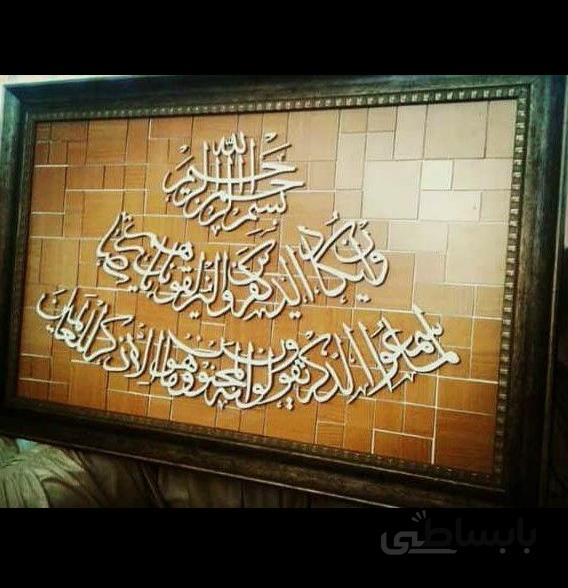 بسم الله الرحمن الرحیم
وان یکاد الذین کفروا لیزلقونک بابصارهم
لما سمعوا الذکر و یقولون انه لمجنون وما هو الا ذکر للعالمین
باباطی